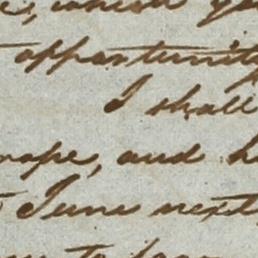 which yo
opportunity
I shall
rope, and h
June next,
to